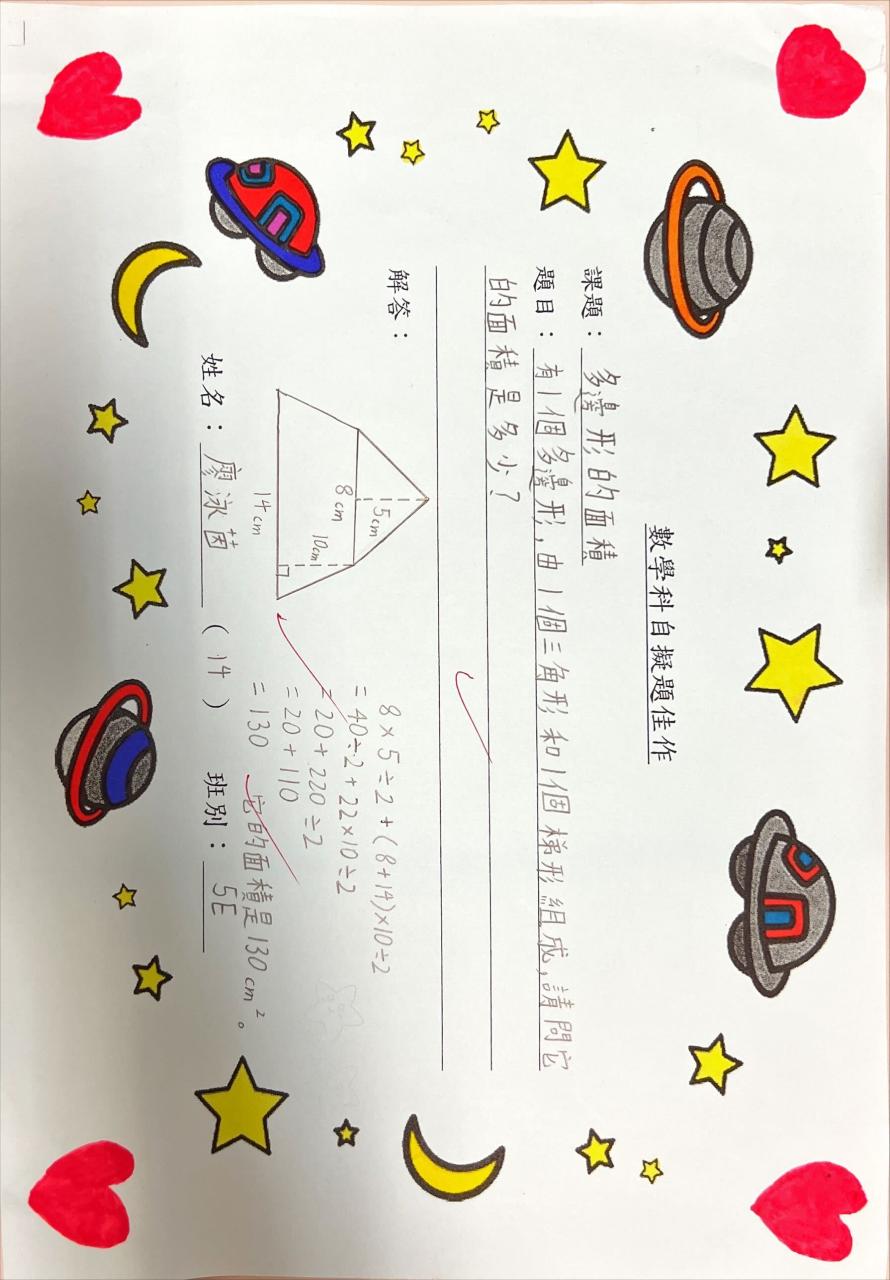 數學科自擬題佳作
課題：多邊形的面積
題目：有1個多邊形,由1個三角形和1個梯形組成,請問它
的面積是多少?
解答：
5cm
8cm
10cm
14cm
8×5÷2+(8+14)×10÷2
=40÷2+22×10÷2
=20+220÷2
=20+110
=130
它的面積是130cm²。
姓名：廖泳茵 (14) 班別：5E